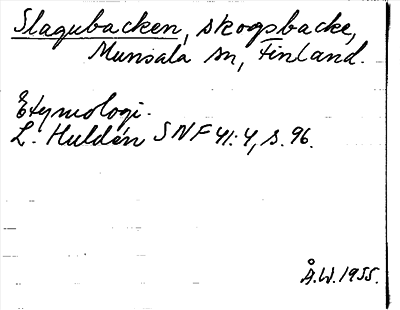 Slagubacken, skogsbacke,
Munsala sn, Finland.
Etymologi.
L. Huldén SNF 41:4, s. 96.
Å.W. 1955.